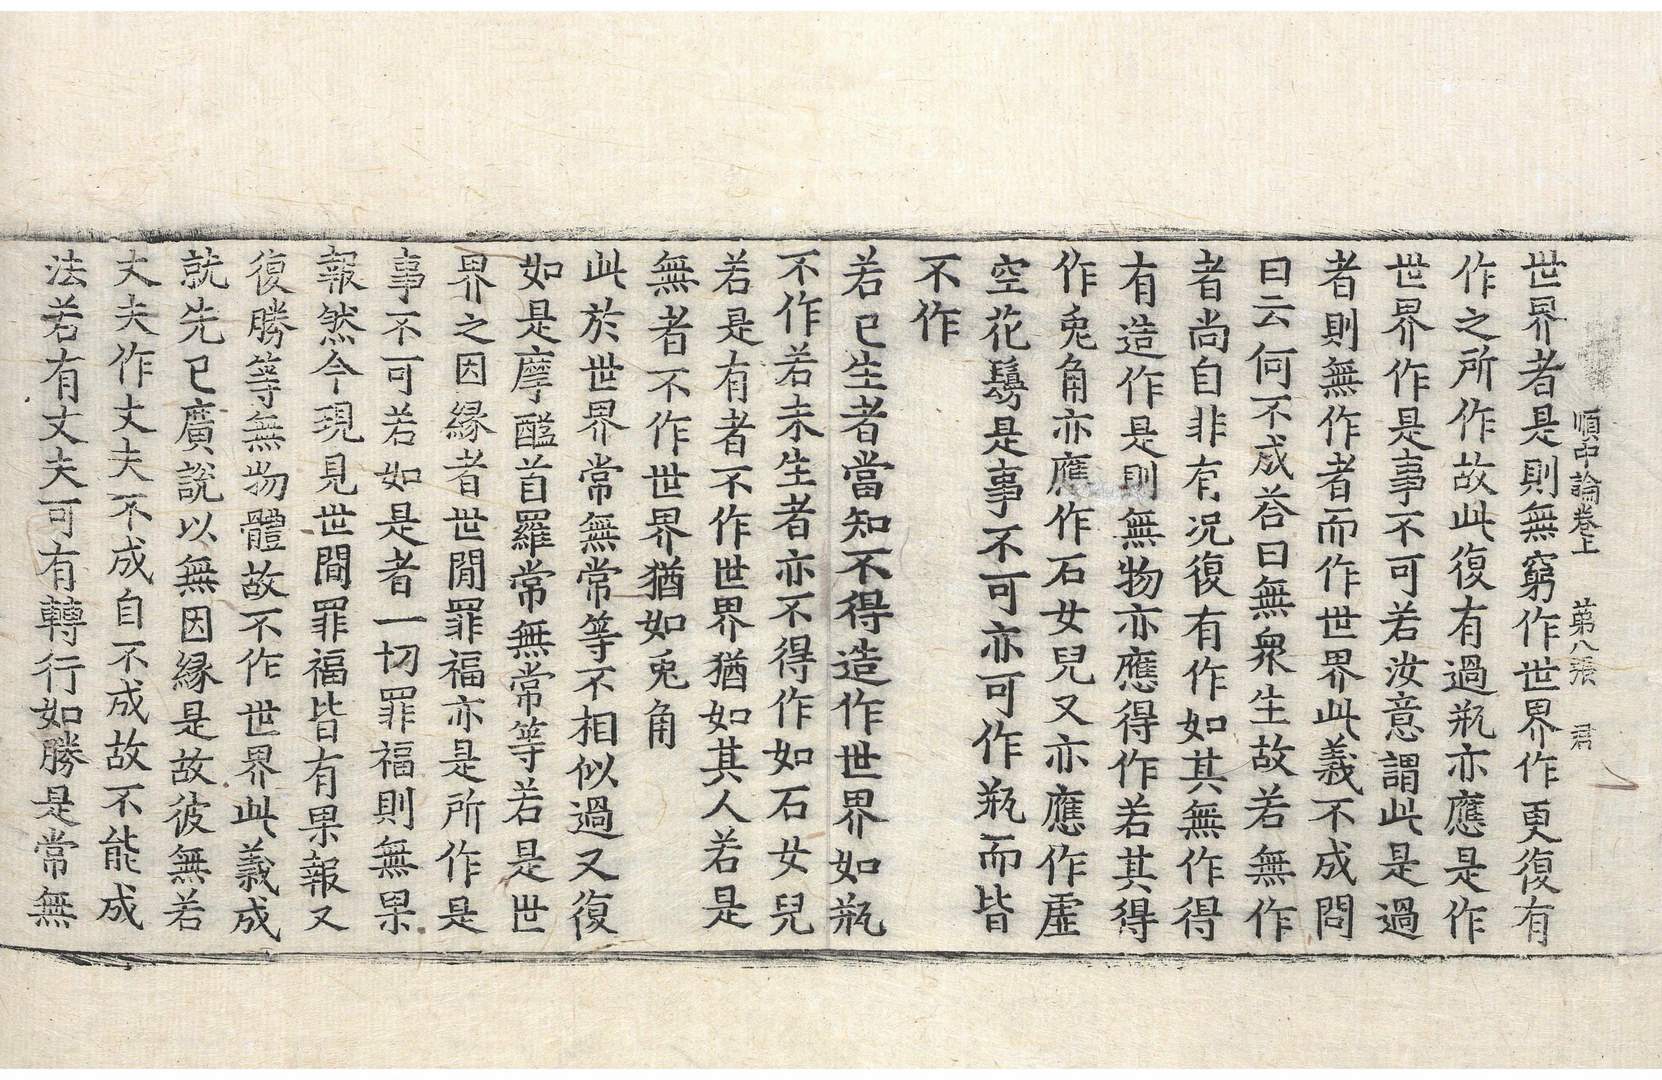 順中論卷上　第八張　君
世界者是則無窮作世界作更復有
作之所作故此復有過瓶亦應是作
世界作是事不可若汝意謂此是過
者則無作者而作世界此義不成問
曰云何不成荅曰無衆生故若無作
者尚自非有况復有作如其無作得
有造作是則無物亦應得作若其得
作兎角亦應作石女兒又亦應作虛
空花鬘是事不可亦可作瓶而皆
不作
若已生者當知不得造作世界如瓶
不作若未生者亦不得作如石女兒
若是有者不作世界猶如其人若是
無者不作世界猶如兎角
此於世界常無常等不相似過又復
如是摩醯首羅常無常等若是世
界之因緣者世閒罪福亦是所作是
事不可若如是者一切罪福則無果
報然今現見世間罪福皆有果報又
復勝等無物體故不作世界此義成
就先已廣說以無因緣是故彼無若
丈夫作丈夫不成自不成故不能成
法若有丈夫可有轉行如勝是常無